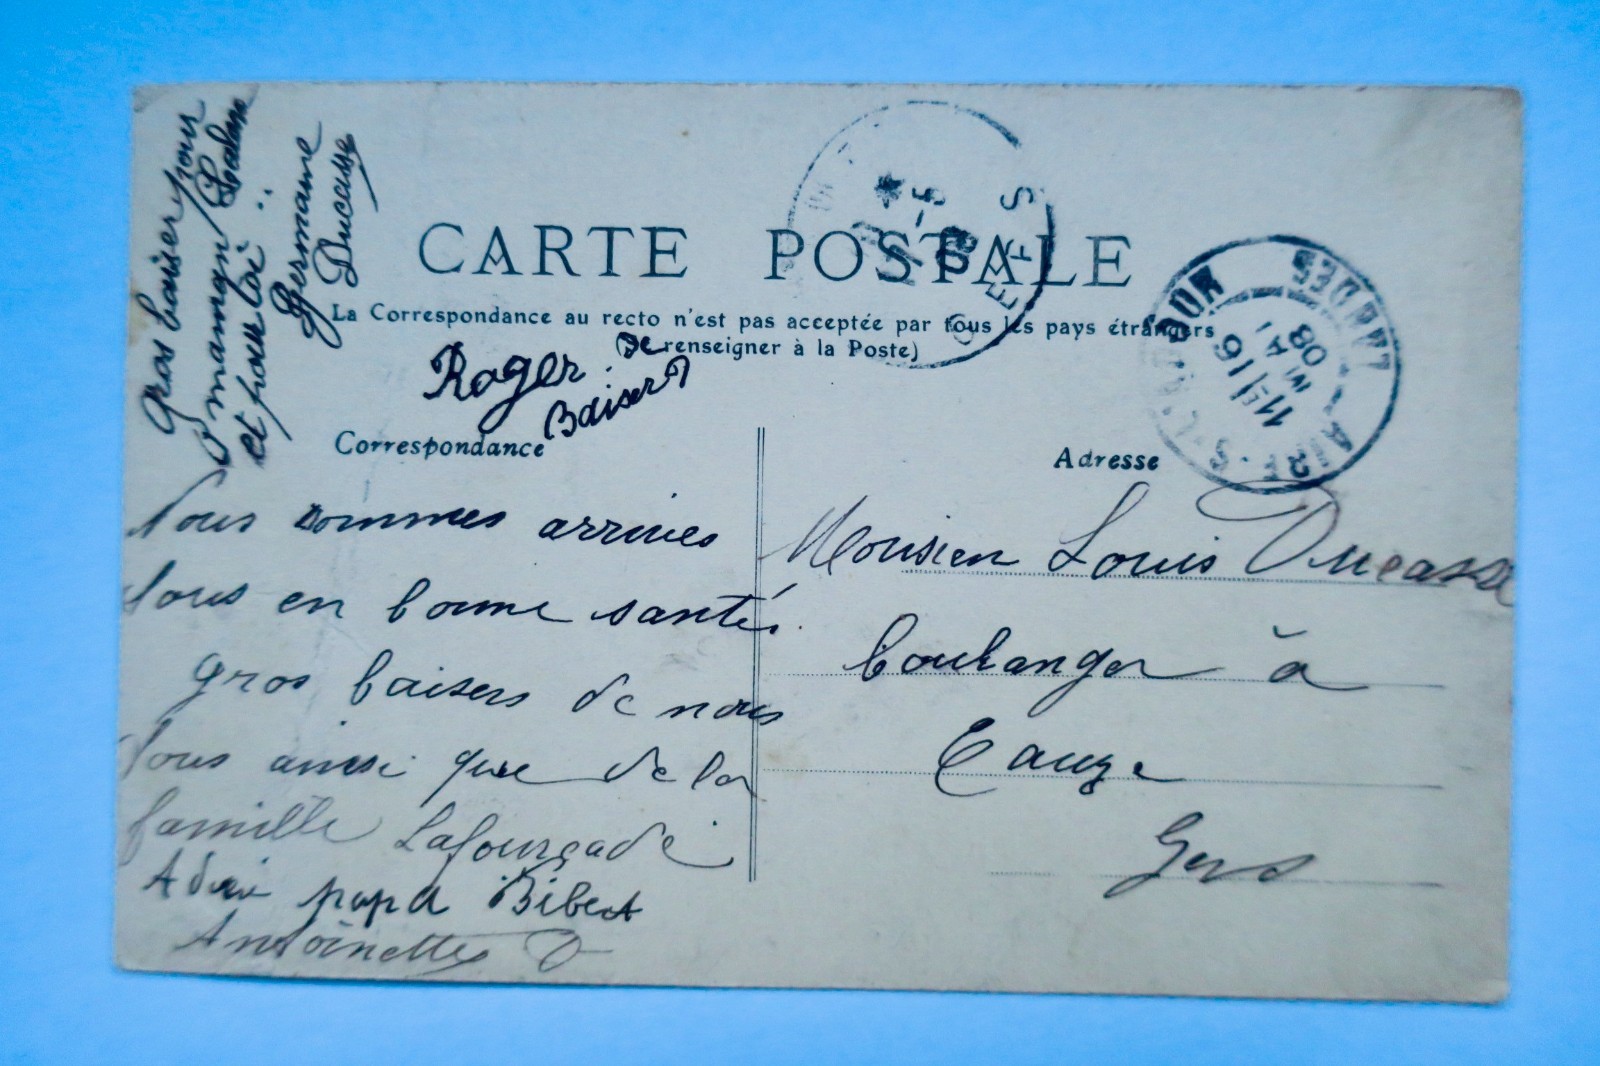 Gros baiser pour
maman Lalan
et pour toi
Germaine
Ducasse
CARTE POSTALE
La Correspondance au recto n'est pas acceptée par tous les pays étrangers
(Se renseigner à la Poste)
Roger
Baiser
Correspondance
Nous sommes arrivés
tous en bonne santé.
gros baisers de nous
tous ainsi que de la
famille Lafourcade
Adieu papa Bibert
Antoinette D
Adresse
Monsieur Louis Ducasse
boulanger à
Eauze
Gers
GERS
AIRE-S-L'ADOUR
LANDES
11 16
MAI
08